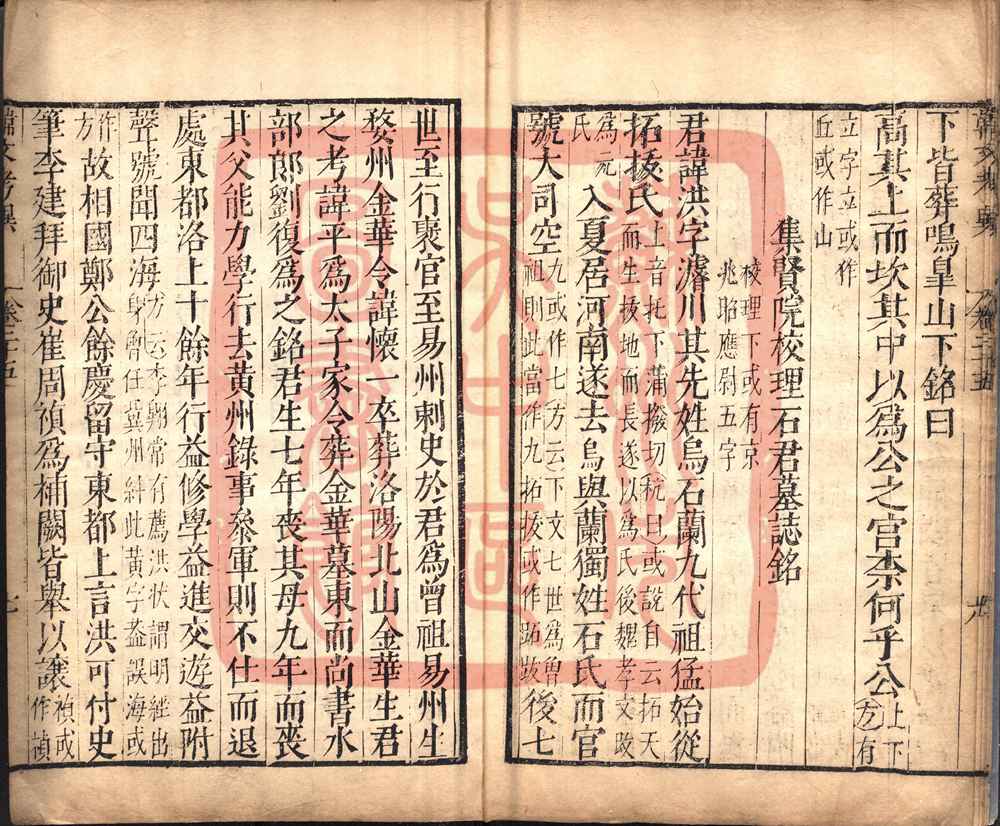 下皆葬鳴臯山下銘曰
高其上而坎其中以爲公之宫柰何乎公上下方有
立字立或作
丘或作山
集賢院校理石君墓誌銘
校理下或有京
兆昭應尉五字
君諱洪字濬川其先姓烏石蘭九代祖猛始從
拓拔氏上音托下蒲撥切杭曰或說自云拓天
而生拔地而長遂以爲氏後魏孝文改
爲元
氏入夏居河南遂去烏與蘭獨姓石氏而官
號大司空九或作七方云下文七世爲曾
祖則此當作九拓拔或作跖跋後七
世至行褧官至易州刺史於君爲曾祖易州生
婺州金華令諱懷一卒葬洛陽北山金華生君
之考諱平爲太子家令葬金華墓東而尚書水
部郎劉復爲之銘君生七年喪其母九年而喪
其父能力學行去黄州錄事叅軍則不仕而退
處東都洛上十餘年行益修學益進交遊益附
聲號聞四海方云李翺常有薦洪状謂明經出
身曾任冀州糾此黄字葢誤海或
作
方故相國鄭公餘慶留守東都上言洪可付史
筆李建拜御史崔周禎爲補闕皆舉以讓禎或
作禎
韓文考異
卷二十五
九